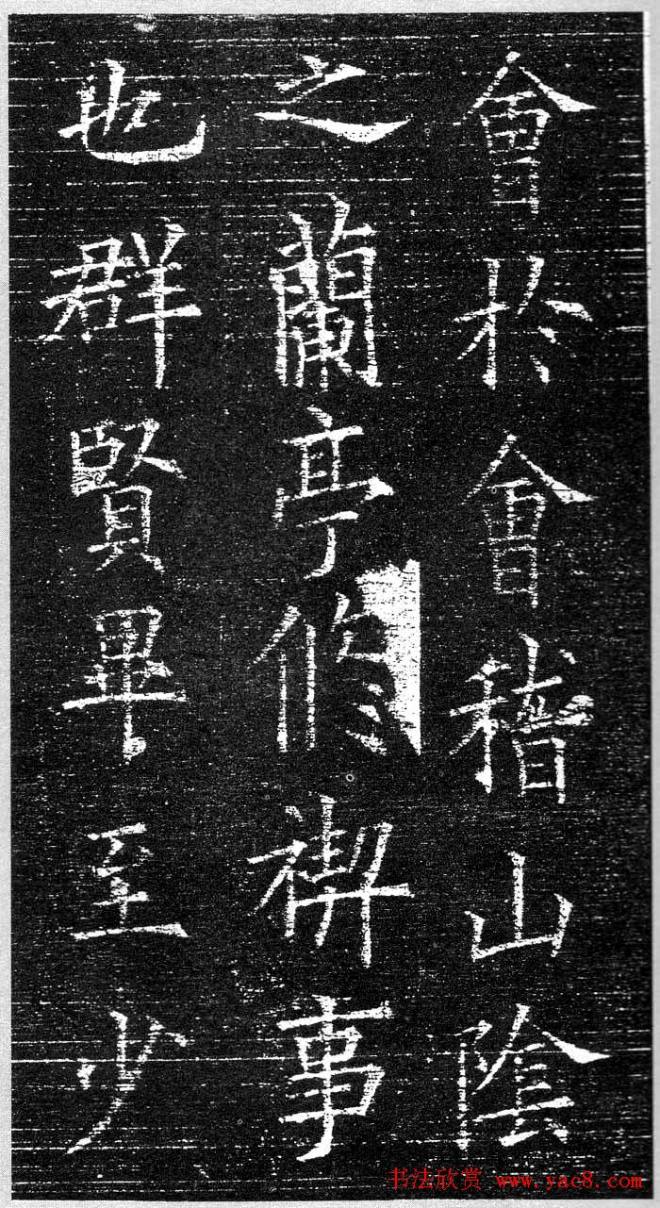 會於會稽山陰
之蘭亭修禊事
也群賢畢至少
书法欣赏 www.yac8.com